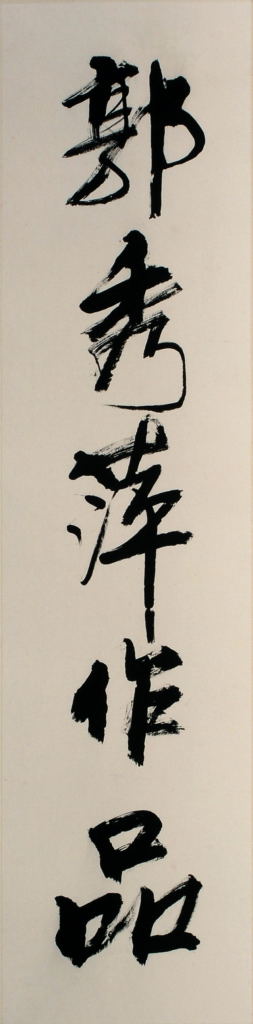 郭秀萍作品